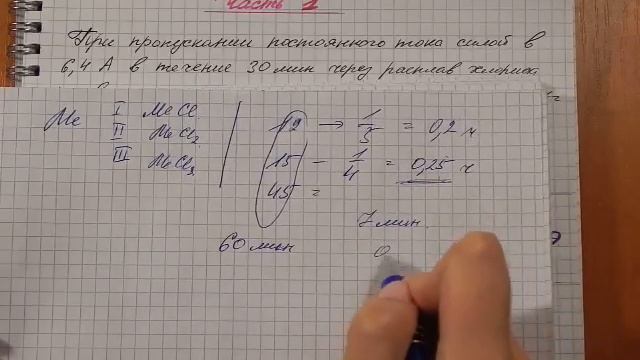 Часть 1
При пропускании постоянного тока силой в
6,4 А в течение 30 мин через расплав хлорида
Me I MeCl
II MeCl2
III MeCl3
12 → 1/5 = 0,2 ч
15 - 1/4 = 0,25 ч
45 =
7 мин.
60 мин
0